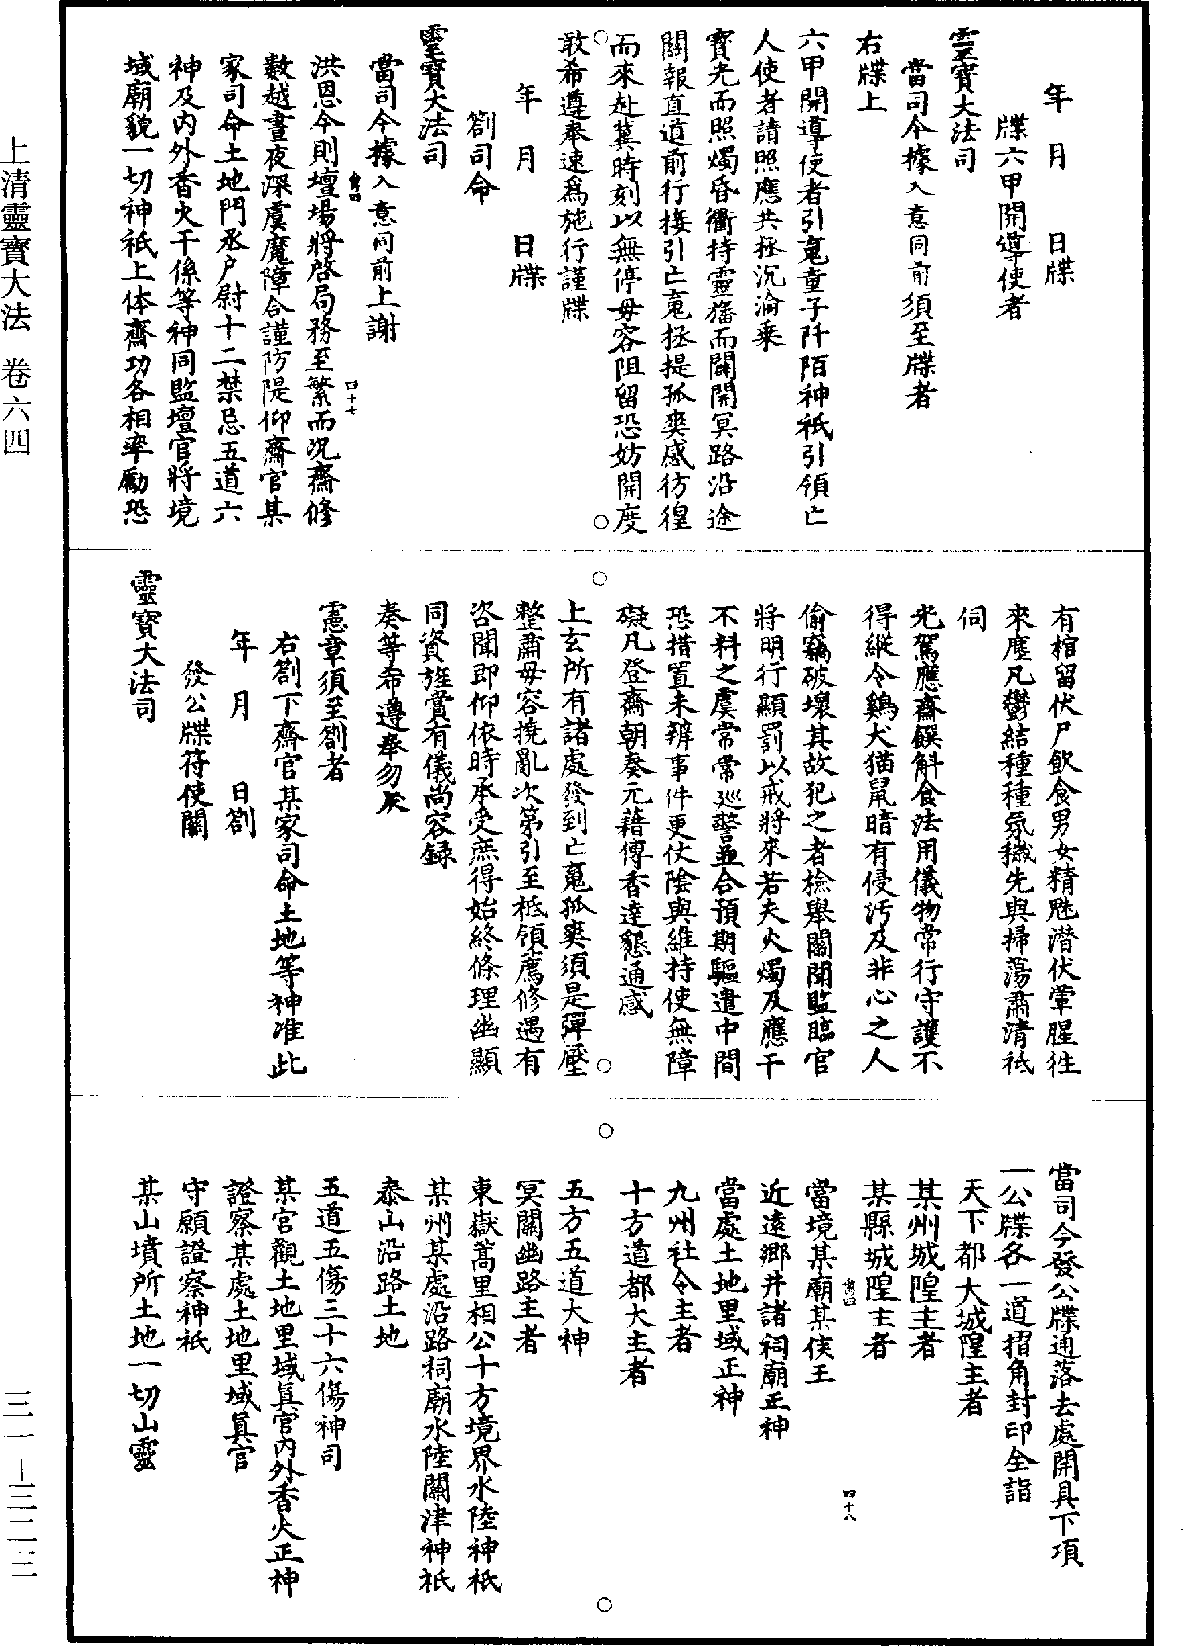 年　月　　日牒
牒六甲開導使者
靈寶大法司
當司今據入意同前須至牒者
右牒上
六甲開導使者引䰟童子阡陌神祇引領亡
人使者請照應共拯沉淪乗
寳光而照燭昏衢持靈旛而開闢冥路沿途
關報直道前行接引亡䰟拯提孤爽感彷徨
而來赴冀時刻以無停毋容阻留恐妨開度
敢希遵奉速爲施行謹牒
年　月　　日牒
劄司命
靈寳大法司
當司今據入意同前上謝
洪恩今則壇場將啓局務至繁而况齋修
數越晝夜深虞魔障合謹防隄仰齋官某
家司命土地門丞户尉十二禁忌五道六
神及内外香火干係等神同監壇官將境
域廟貌一切神祇上体齋功各相率勵恐
四十七
有棺留伏尸飲食男女精魅潛伏葷腥往
來塵凡鬱結種種氛穢先與掃蕩肅清祗
伺
光駕應齋饌斛食法用儀物常行守護不
得縱令鷄犬猫鼠暗有侵污及非心之人
偷竊破壞其故犯之者檢舉關聞監臨官
將明行顯罰以戒將來若夫火燭及應干
不料之虞常常巡警並合預期驅遣中間
恐措置未辨事件更仗陰與維持使無障
礙凡登齋朝奏元藉傳香達懇通感
上玄所有諸處發到亡䰟孤爽須是彈壓
整肅毋容撓亂次第引至祗領薦修遇有
咨聞即仰依時承受庶得始終條理幽顯
同資旌賞有儀尚容録
奏等希遵奉勿戾
憲章須至劄者
右劄下齋官某家司命土地等神准此
年　月　　日劄
發公牒符使關
靈寶大法司
當司今發公牒逓落去處開具下項
一公牒各一道摺角封印全詣
天下都大城隍主者
某州城隍主者
某縣城隍主者
四十八
當境某廟某侯王
近遠鄉井諸祠廟正神
當處土地里域正神
九州社令主者
十方道都大主者
五方五道大神
冥關幽路主者
東嶽蒿里相公十方境界水陸神祇
某州某處沿路祠廟水陸關津神祇
泰山沿路土地
五道五傷三十六傷神司
某官觀土地里域眞官内外香火正神
證察某處土地里域眞官
守願證察神祇
某山墳所土地一切山靈
上清靈寶大法　卷六四
三一—三二三